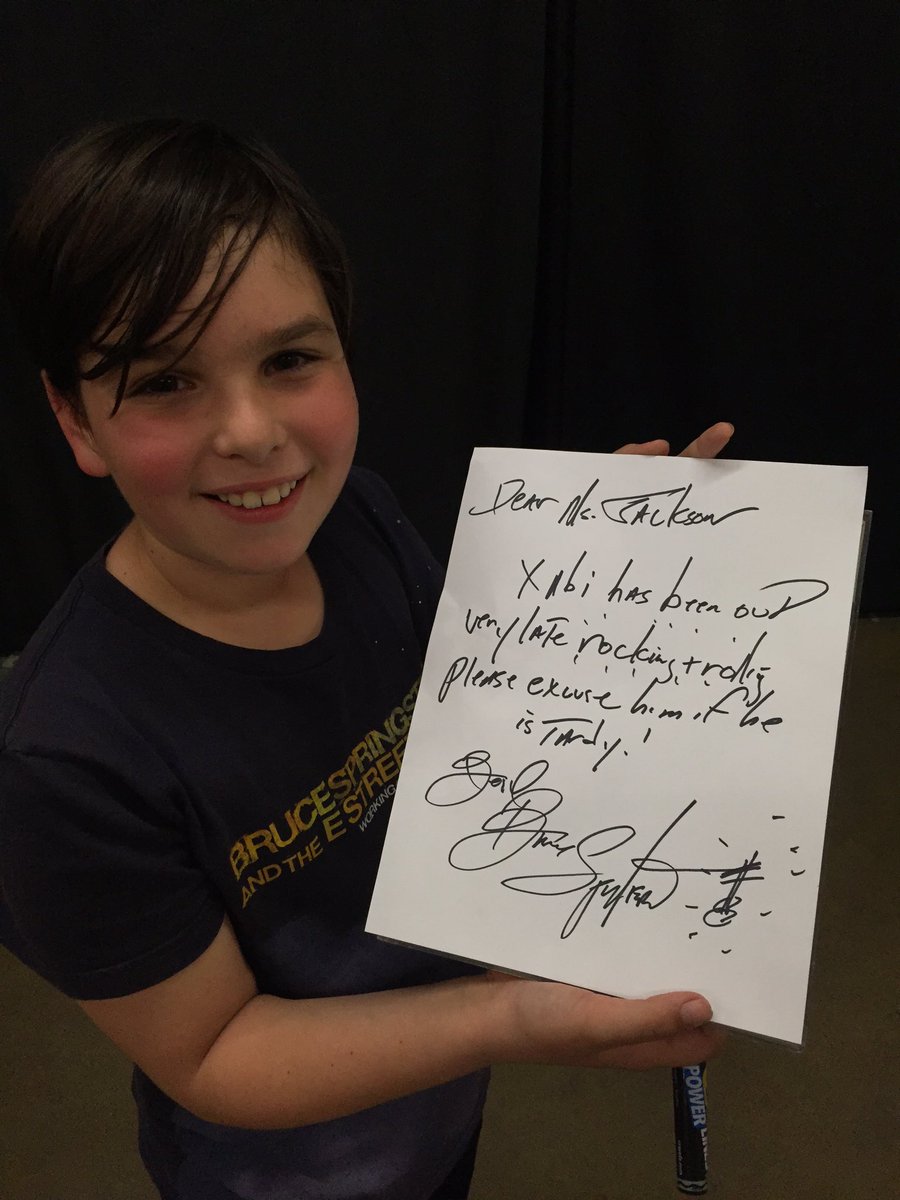 Dear Ms. Jackson
Xabi has been out
very late rocking + rollig
please excuse him if he
is Tardy!
Bruce Springsteen
BRUCE SPRINGST
AND THE E STREE
WORKING
POWER LI